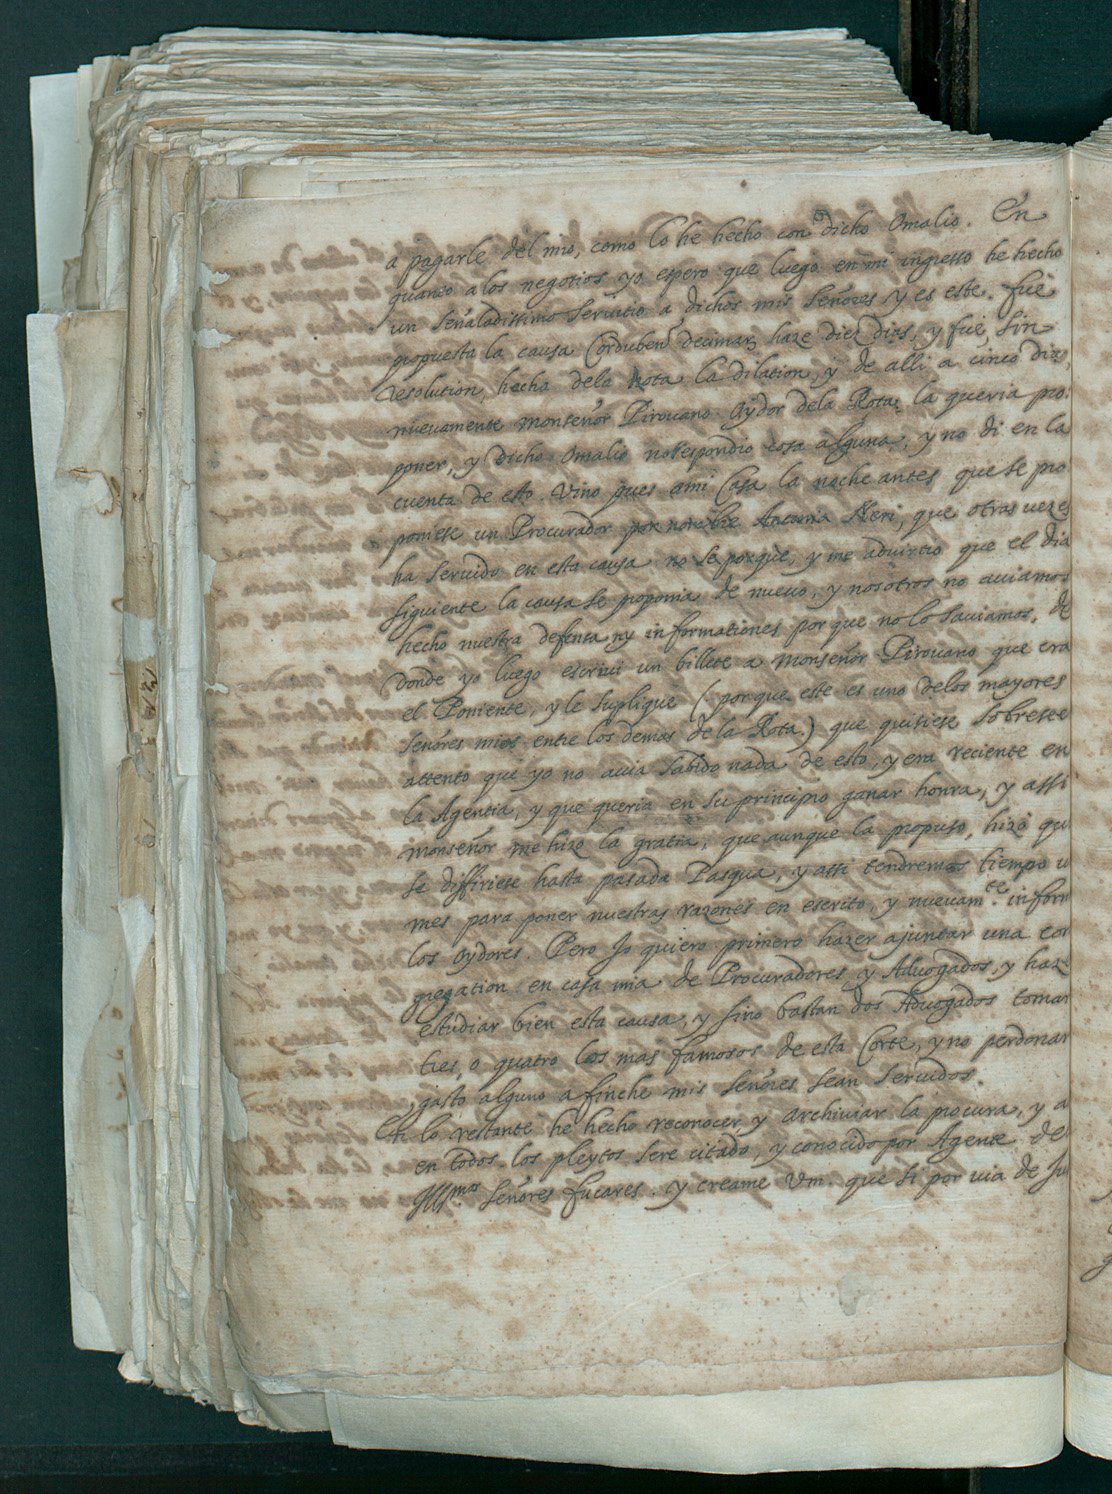 a pagarle del mio, como lo he hecho con dicho Omalio. En
quanto a los negotios yo espero que luego en mi ingresso he hecho
un señaladissimo servitio a dichos mis Señores y es este. fué
propuesta la causa Corduben decimar haze diez dias, y fué sin
resolution, hecha dela Rota la dilation, y de alli a cinco dias,
nuevamente monseñor Pirouano Oydor dela Rota, la queria pro:
poner, y dicho Omalio no respondio cosa alguna, y no di en la
cuenta de esto. Vino pues a mi Casa la noche antes que se pro
poniese un Procurador por nombre Antonio Neri, que otras vezes
ha servido en esta causa no se porque, y me advirtio que el dia
siguiente la causa se proponia de nuevo, y nosotros no aviamos
hecho nuestra defensa ny informationes porque no lo saviamos, de
donde yo luego escrivi un billete a Monseñor Pirouano que era
el Poniente, y le supliqué (porque este es uno delos mayores
señores mios entre los demas de la Rota.) que quisiese sobresee
attento que yo no avia sabido nada de esto, y era reciente en
la Agentia, y que queria en su principio ganar honra, y assi
Monseñor me hizo la gratia, que aunque la propuso, hizo qu
se diffiriese hasta pasada Pasqua, y assi tendremos tiempo u
mes para poner nuestras razones en escrito, y nuevam.te inform
los oydores. Pero Jo quiero primero hazer ajuntar una con
gregation en casa mia de Procuradores y Advogados, y haze
estudiar bien esta causa, y sino bastan dos Advogados tomar
tres, o quatro los mas famosos de esta Corte, y no perdonar
gasto alguno afinche mis señores sean servidos.
En lo restante he hecho reconocer, y archiviar la procura, y a
en todos los pleytos sere citado, y conocido por Agente de
Illmos señores fucares. y creame Vm. que si por via de Ju